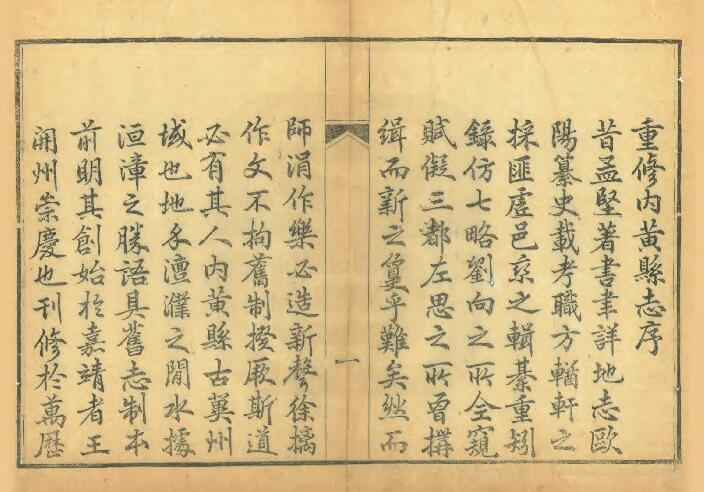 重修内黃縣志序
昔孟堅著書聿詳地志歐
陽纂史載考職方輶軒之
採匪虛邑乘之輯綦重矧
錄仿七略劉向之所全窺
賦儗三都左思之所曾撰
緝而新之乎難矣然而
一
師涓作樂必造新聲徐摛
作文不拘舊制揆厥斯道
必有其人内黃縣古冀州
域也地澶濮之閒水據
洹漳之勝語具舊志制本
前明其創始於嘉靖者王
開州崇慶也刊修於萬歷